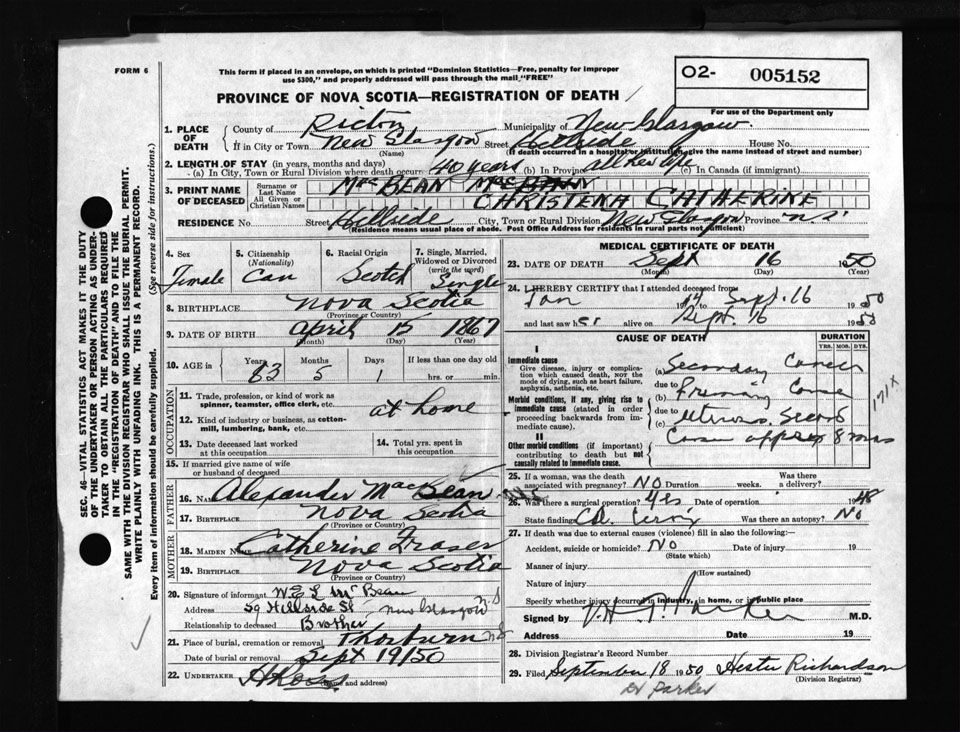 FORM 6
This form if placed in an envelope, on which is printed "Dominion Statistics—Free, penalty for improper
use $300," and properly addressed will pass through the mail "FREE"
O2- 005152
For use of the Department only
PROVINCE OF NOVA SCOTIA—REGISTRATION OF DEATH
1. PLACE OF DEATH
County of Pictou Municipality of New Glasgow
If in City or Town New Glasgow Street Hillside House No.
(Name) (If death occurred in a hospital or institution, give the name instead of street and number)
2. LENGTH OF STAY (in years, months and days)
(a) In City, Town or Rural Division where death occurred 40 years (b) In Province all her life (c) In Canada (if immigrant)
3. PRINT NAME OF DECEASED
Surname or Last Name MacBEAN
All Given or Christian Names CHRISTENA CATHERINE
RESIDENCE No. Street Hillside City, Town or Rural Division New Glasgow Province N.S.
(Residence means usual place of abode. Post Office Address for residents in rural parts not sufficient)
4. Sex Female
5. Citizenship (Nationality) Can
6. Racial Origin Scotch
7. Single, Married, Widowed or Divorced (write the word) Single
8. BIRTHPLACE Nova Scotia
(Province or Country)
9. DATE OF BIRTH April 15 1867
(Month) (Day) (Year)
10. AGE in Years Months Days If less than one day old
83 5 1 hrs. or min.
OCCUPATION
11. Trade, profession, or kind of work as spinner, teamster, office clerk, etc.
at home
12. Kind of industry or business, as cotton-mill, lumbering, bank, etc.
13. Date deceased last worked at this occupation
14. Total yrs. spent in this occupation
15. If married give name of wife or husband of deceased
FATHER
16. Name Alexander MacBean
17. Birthplace Nova Scotia
(Province or Country)
MOTHER
18. Maiden Name Catherine Fraser
19. Birthplace Nova Scotia
(Province or Country)
20. Signature of informant W.E.L. McBean
Address 59 Hillside St New Glasgow N S
Relationship to deceased Brother
21. Place of burial, cremation or removal Thorburn N S
Date of burial or removal Sept 19/50
22. UNDERTAKER H Ross
(Name and address)
MEDICAL CERTIFICATE OF DEATH
23. DATE OF DEATH Sept 16 1950
(Month) (Day) (Year)
24. I HEREBY CERTIFY that I attended deceased from
Jan 19 to Sept. 16 1950
and last saw her alive on Sept. 16 1950
CAUSE OF DEATH
DURATION
YRS. MOS. DYS.
I
Immediate cause
Give disease, injury or complication which caused death, NOT the mode of dying, such as heart failure, asphyxia, asthenia, etc.
(a) Secondary Cancer
due to
Morbid conditions, if any, giving rise to immediate cause (stated in order proceeding backwards from immediate cause).
(b) Primary
due to
(c) uterus.
approx 8 mos
171X
II
Other morbid conditions (if important) contributing to death but not causally related to immediate cause.
25. If a woman, was the death associated with pregnancy? NO Duration weeks. Was there a delivery?
26. Was there a surgical operation? Yes Date of operation 1948
State findings Ca. Cervix Was there an autopsy? No
27. If death was due to external causes (violence) fill in also the following:
Accident, suicide or homicide? No Date of injury 19
(State which)
Manner of injury
(How sustained)
Nature of injury
Specify whether injury occurred in industry, in home, or in public place
Signed by Parker M.D.
Address Date 19
28. Division Registrar's Record Number
29. Filed September 18 1950 Hester Richardson
(Division Registrar)
Dr Parker
SEC. 46—VITAL STATISTICS ACT MAKES IT THE DUTY
OF THE UNDERTAKER OR PERSON ACTING AS UNDER-
TAKER TO OBTAIN ALL THE PARTICULARS REQUIRED
IN THE "REGISTRATION OF DEATH" AND TO FILE THE
SAME WITH THE DIVISION REGISTRAR WHO SHALL ISSUE THE BURIAL PERMIT.
WRITE PLAINLY WITH UNFADING INK. THIS IS A PERMANENT RECORD.
Every item of information should be carefully supplied.
(See reverse side for instructions.)